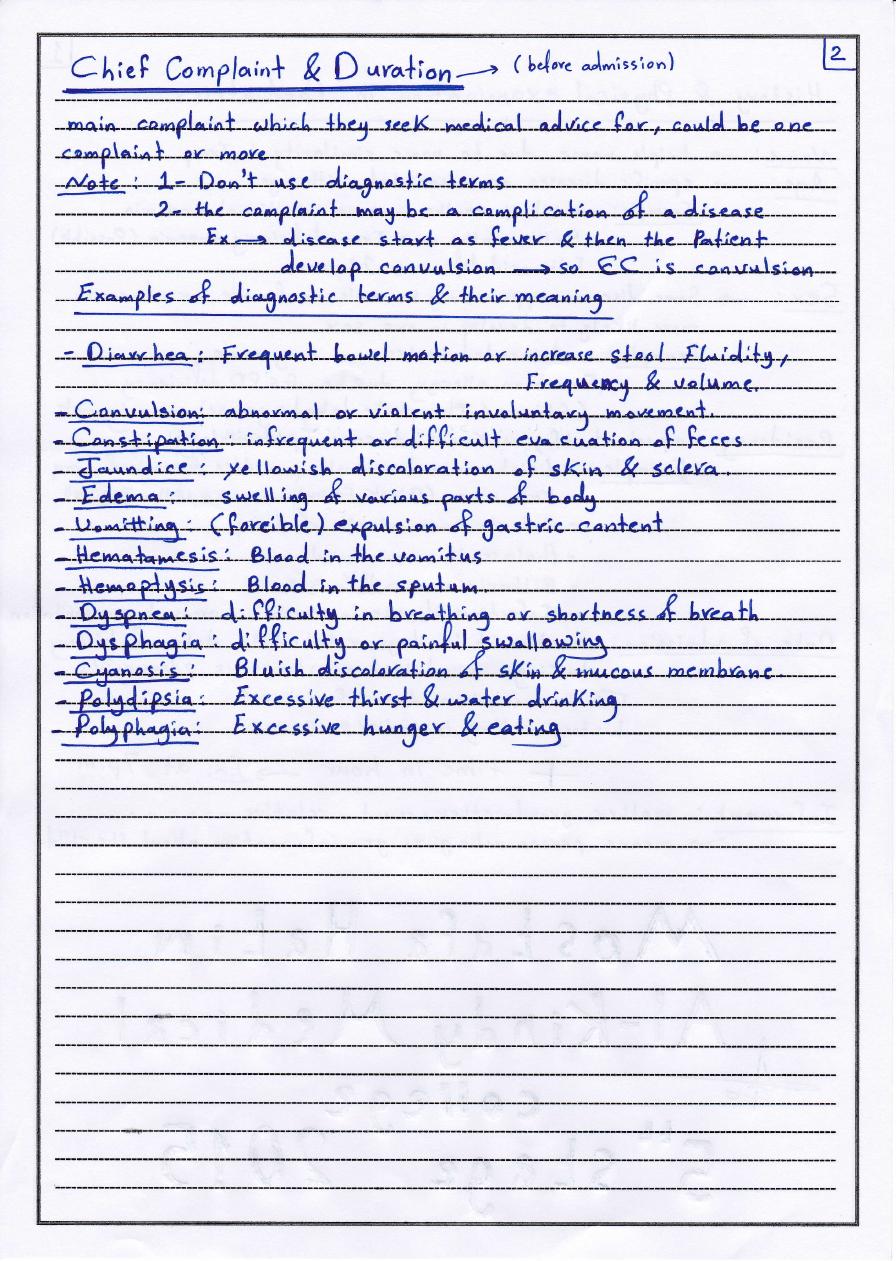 2
Chief Complaint & Duration → (before admission)
main complaint which they seek medical advice for, could be one
complaint or more
Note : 1- Don't use diagnostic terms
2- the complaint may be a complication of a disease
Ex → disease start as fever & then the Patient
develop convulsion → so CC is convulsion
Examples of diagnostic terms & their meaning
- Diarrhea : Frequent bowel motion or increase stool Fluidity,
Frequency & volume.
- Convulsion: abnormal or violent involuntary movement.
- Constipation : infrequent or difficult evacuation of feces
- Jaundice : yellowish discoloration of skin & sclera.
- Edema : swelling of various parts of body
- Vomitting : (forcible) expulsion of gastric content
- Hematamesis : Blood in the vomitus
- Hemoptysis : Blood in the sputum
- Dyspnea : difficulty in breathing or shortness of breath
- Dysphagia : difficulty or painful swallowing
- Cyanosis : Bluish discoloration of skin & mucous membrane
- Polydipsia : Excessive thirst & water drinking
- Polyphagia : Excessive hunger & eating
Mostafa Hatim
Al-Kindy Medical
college
5th stage 2015 -